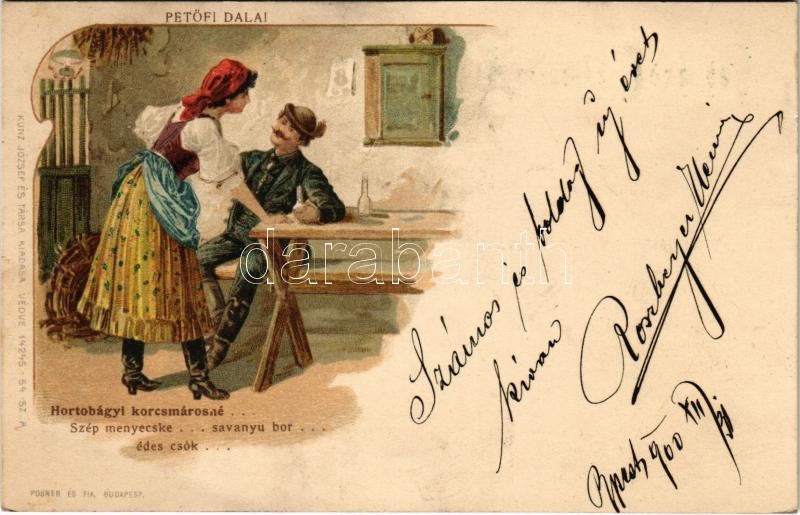 PETŐFI DALAI
KUNZ JÓZSEF ÉS TÁRSA KIADÁSA VÉDVE 14245 - 54 SZ. A.
darabanth
Hortobágyi korcsmárosné . . .
Szép menyecske . . . savanyu bor . . .
édes csók . . .
POSNER ÉS FIA, BUDAPEST.
Számos és boldog új évet
kíván
Bpest, 900 XII/31